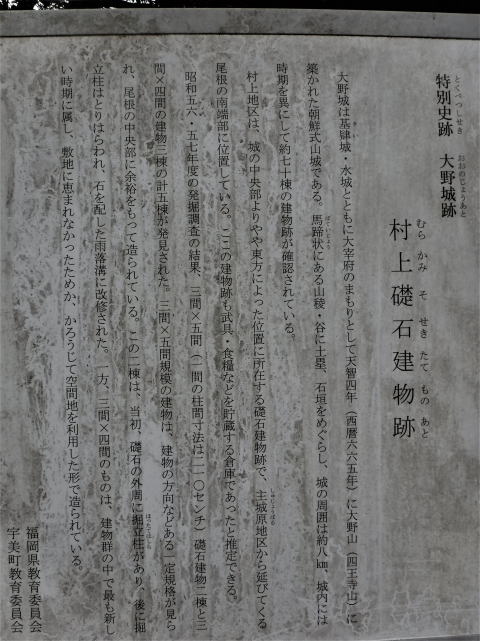 特別史跡 大野城跡
とくべつしせき おおのじょうあと
村上礎石建物跡
むら かみ そ せき たて もの あと
大野城は基肄城・水城とともに大宰府のまもりとして天智四年（西暦六六五年）に大野山（四王寺山）に
築かれた朝鮮式山城である。馬蹄状にある山稜・谷に土塁、石垣をめぐらし、城の周囲は約八㎞、城内には
時期を異にして約七十棟の建物跡が確認されている。
村上地区は、城の中央部よりやや東方によった位置に所在する礎石建物跡で、主城原地区から延びてくる
尾根の南端部に位置している。ここの建物跡も武具・食糧などを貯蔵する倉庫であったと推定できる。
昭和五六・五七年度の発掘調査の結果、三間×五間（一間の柱間寸法は二一〇センチ）礎石建物二棟と三
間×四間の建物三棟の計五棟が発見された。三間×五間規模の建物は、建物の方向などある一定規格が見ら
れ、尾根の中央部に余裕をもって造られている。この二棟は、当初、礎石の外周に掘立柱があり、後に掘
立柱はとりはらわれ、石を配した雨落溝に改修された。一方、三間×四間のものは、建物群の中で最も新し
い時期に属し、敷地に恵まれなかったためか、かろうじて空間地を利用した形で造られている。
福岡県教育委員会
宇美町教育委員会